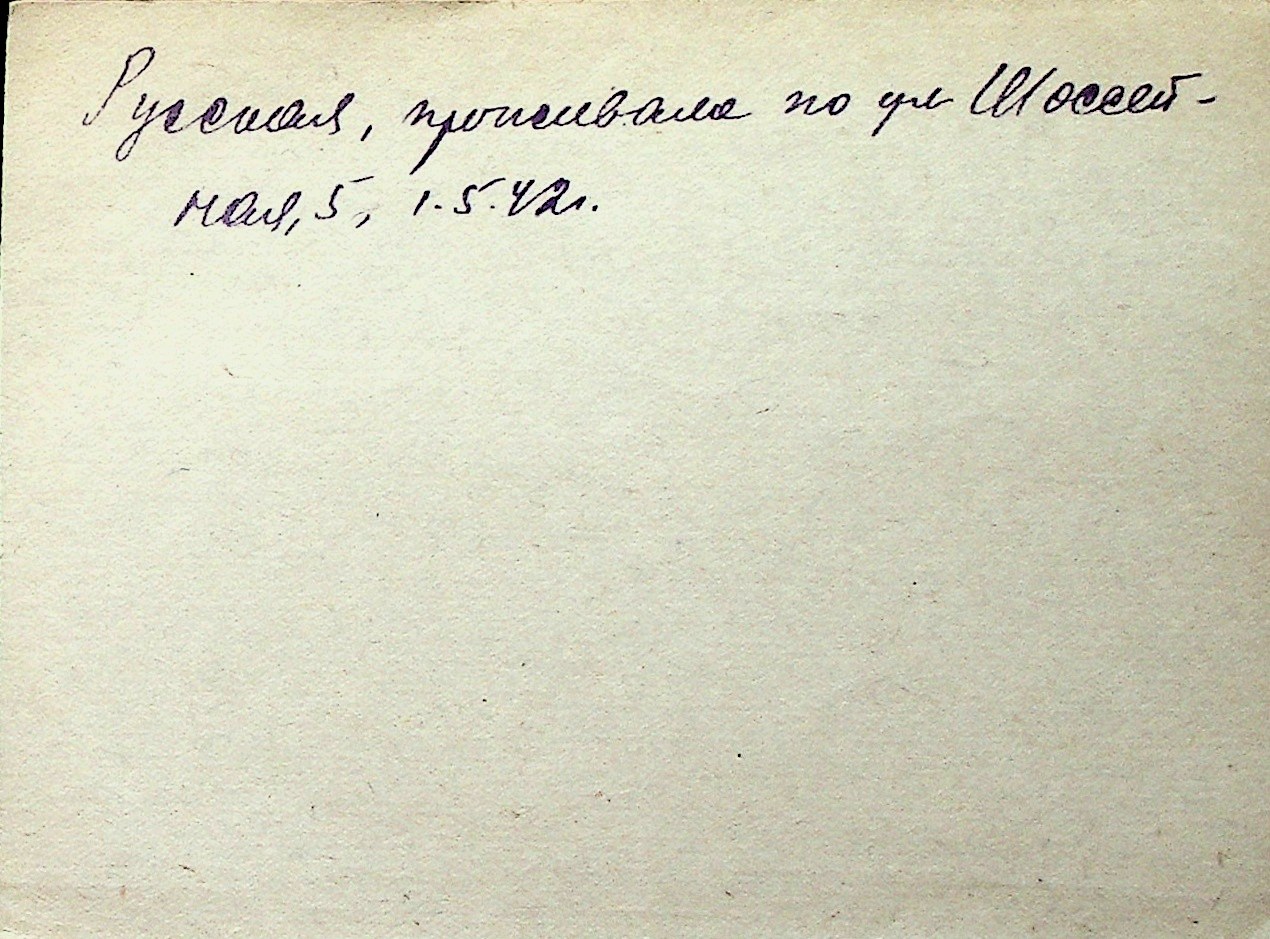 Русская, проживала по ул Шоссей-
ная, 5, 1.5.42г.